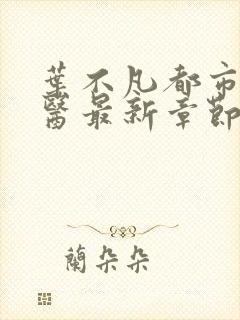 葉不凡都市
醫最新章節
蘭朵朵